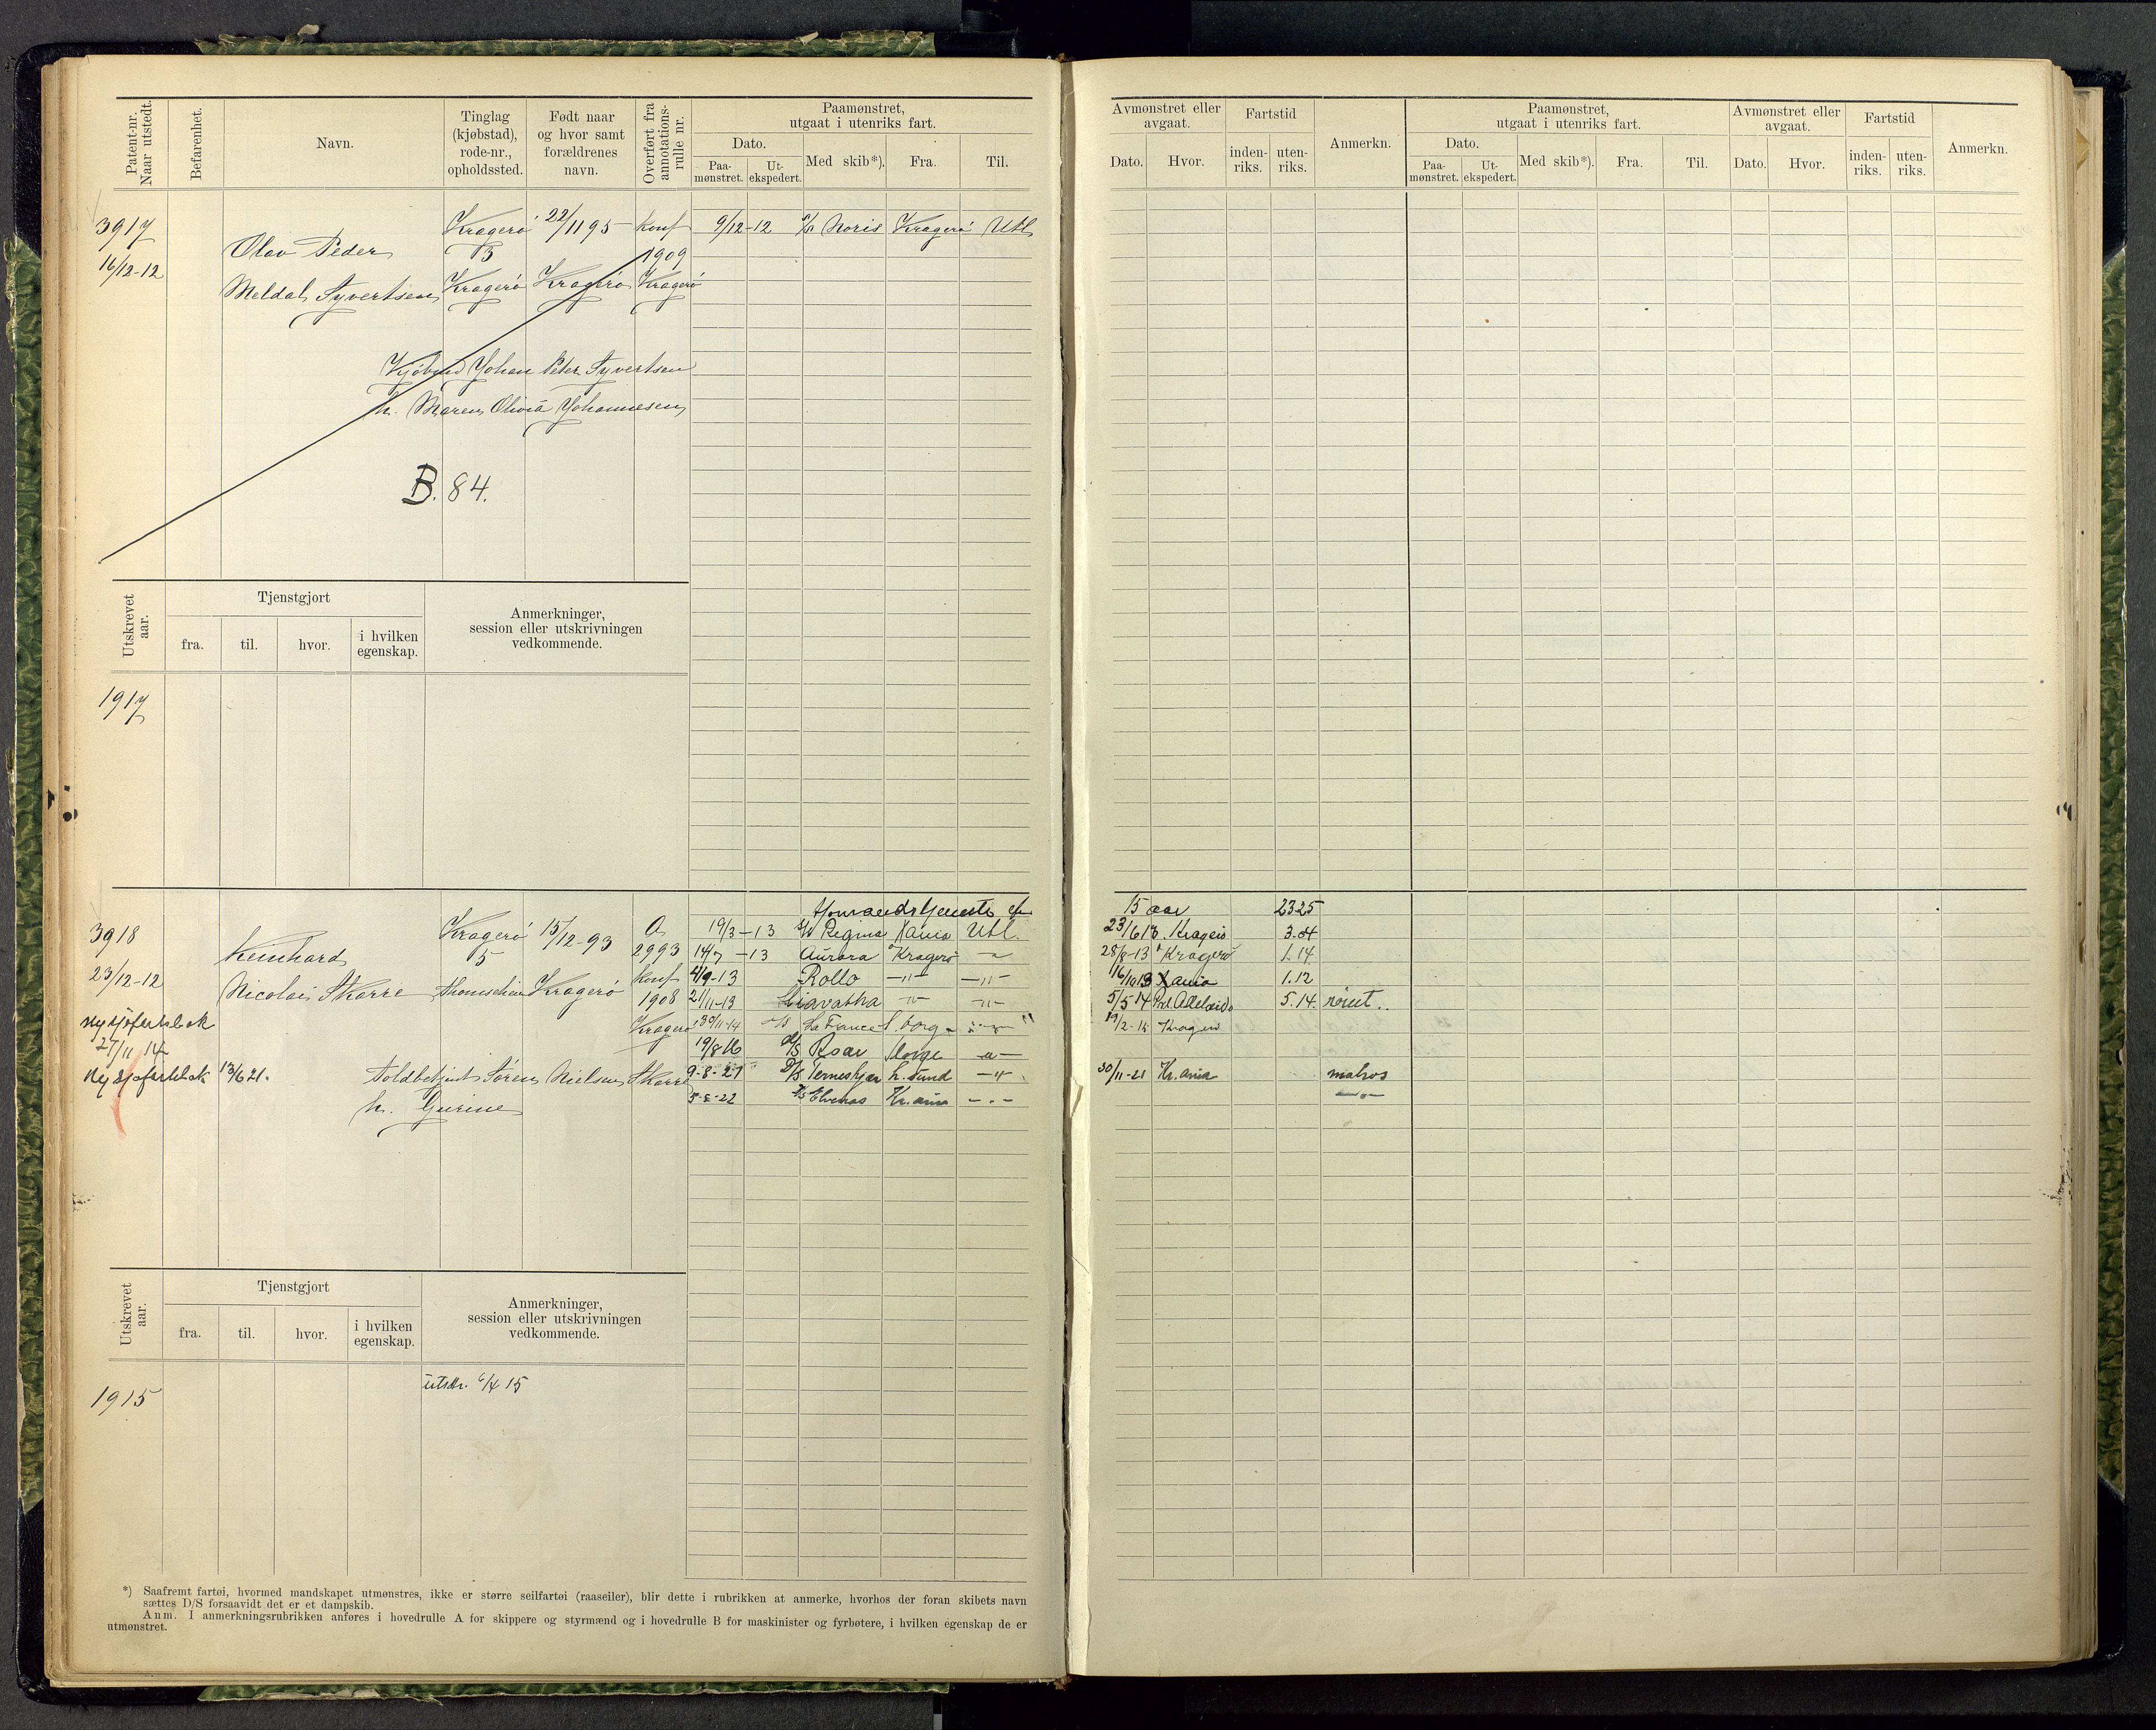 Patent-nr. Naar utstedt.
Befarenhet.
Navn.
Tinglag (kjøbstad), rode-nr., opholdssted.
Født naar og hvor samt forældrenes navn.
Overført fra annotations-rulle nr.
Paamønstret, utgaat i utenriks fart.
Dato.
Paa-mønstret.
Ut-ekspedert.
Med skib*).
Fra.
Til.
Avmønstret eller avgaat.
Dato.
Hvor.
Fartstid
inden-riks.
uten-riks.
Anmerkn.
Paamønstret, utgaat i utenriks fart.
Dato.
Paa-mønstret.
Ut-ekspedert.
Med skib*).
Fra.
Til.
Avmønstret eller avgaat.
Dato.
Hvor.
Fartstid
inden-riks.
uten-riks.
Anmerkn.
3917 Kragerø 22/11 95 Konf 9/12-12 Noris Kragerø Utl
16/12-12 Olav Peder 1909
Meldal Syvertsen Kragerø Kragerø Kragerø
Johan Peter Syvertsen
h. Maren Olivia Johannesen
B. 84.
Utskrevet aar.
Tjenstgjort
fra.
til.
hvor.
i hvilken egenskap.
Anmerkninger, session eller utskrivningen vedkommende.
1917
15 aar 2325
3918 Kragerø 15/12-93 19/3-13 Regina Kania Utl. 23/6 13 Kragerø 3.04
Reinhard 5 2993 14/7-13 Aurora Kragerø 28/8-13 Kragerø 1.14
23/12-12 Nicolai Skarre Kragerø Konf 4/9-13 Rollo -"- -"- 16/10 13 Kania 1.12
1908 21/11-13 Hiavatha -"- -"- 5/5 14 Adelaide 5.14. rømt.
Ny sjøfartsbok Kragerø 30/11-14 La France -"- 19/2-15 Kragerø
27/11 14 19/8 16 D/S Roar -"-
Ny sjøfartsbok 13/6 21. Toldbetjent Søren Nielsen Skarre 9-8-21 D/S Terneskjær -"- 30/11-21 Kr.ania matros
h. Gurine Elvenes Kr.ania -"- -"-
Utskrevet aar.
Tjenstgjort
fra.
til.
hvor.
i hvilken egenskap.
Anmerkninger, session eller utskrivningen vedkommende.
1915 utskr. 6/4 15
*) Saafremt fartøi, hvormed mandskapet utmønstres, ikke er større seilfartøi (raaseiler), blir dette i rubrikken at anmerke, hvorhos der foran skibets navn
sættes D/S forsaavidt det er et dampskib.
Anm. I anmerkningsrubrikken anføres i hovedrulle A for skippere og styrmænd og i hovedrulle B for maskinister og fyrbøtere, i hvilken egenskap de er
utmønstret.